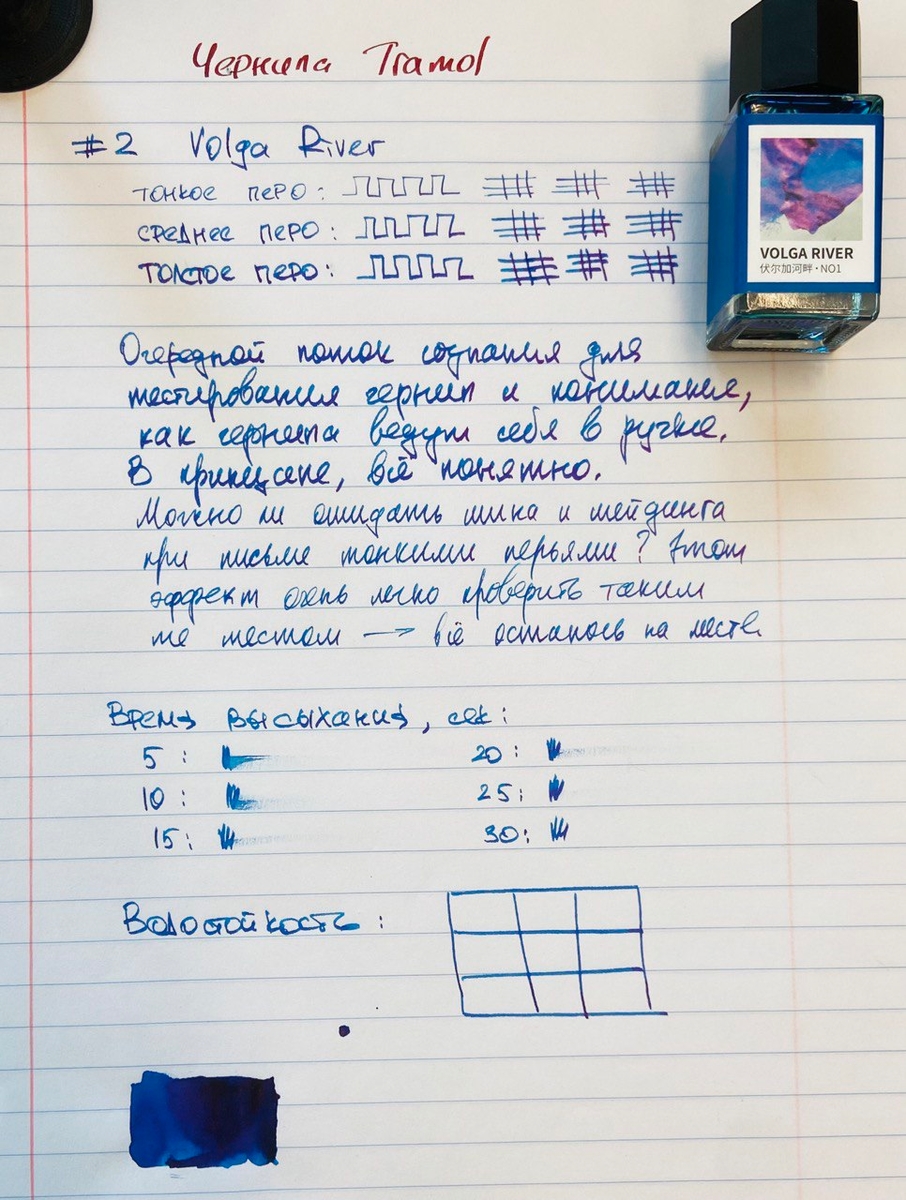 Чернила Tramol
#2 Volga River
тонкое перо:
среднее перо:
толстое перо:
VOLGA RIVER
伏尔加河畔・NO1
Очередной поток сознания для
тестирования чернил и понимания,
как чернила ведут себя в ручке.
В принципе, всё понятно.
Можно ли ожидать шина и шейдинга
при письме тонкими перьями? Этот
эффект очень легко проверить таким
же тестом → всё осталось на месте.
Время высыхания, сек:
5: 20:
10: 25:
15: 30:
Водостойкость: